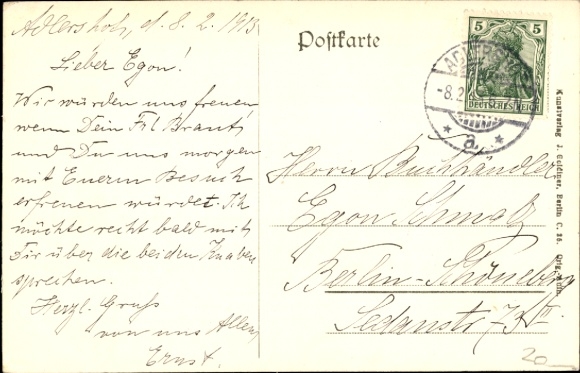 Adlershof, d. 8. 2. 1913
Lieber Egon!
Wir würden uns freuen
wenn Dein Frl Braut
und Du uns morgen
mit Euerm Besuch
erfreuen würdet. Ich
möchte recht bald mit
Dir über die beiden Knaben
sprechen.
Herzl. Gruß
von uns Allen,
Ernst.
Postkarte
5 5
DEUTSCHES REICH
ADLERSHOF
-8.2
* a *
Herrn Buchhändler
Egon Schmalz
Berlin-Schöneberg
Sedanstr.
Kunstverlag J. Goldiner, Berlin C. 25.
20